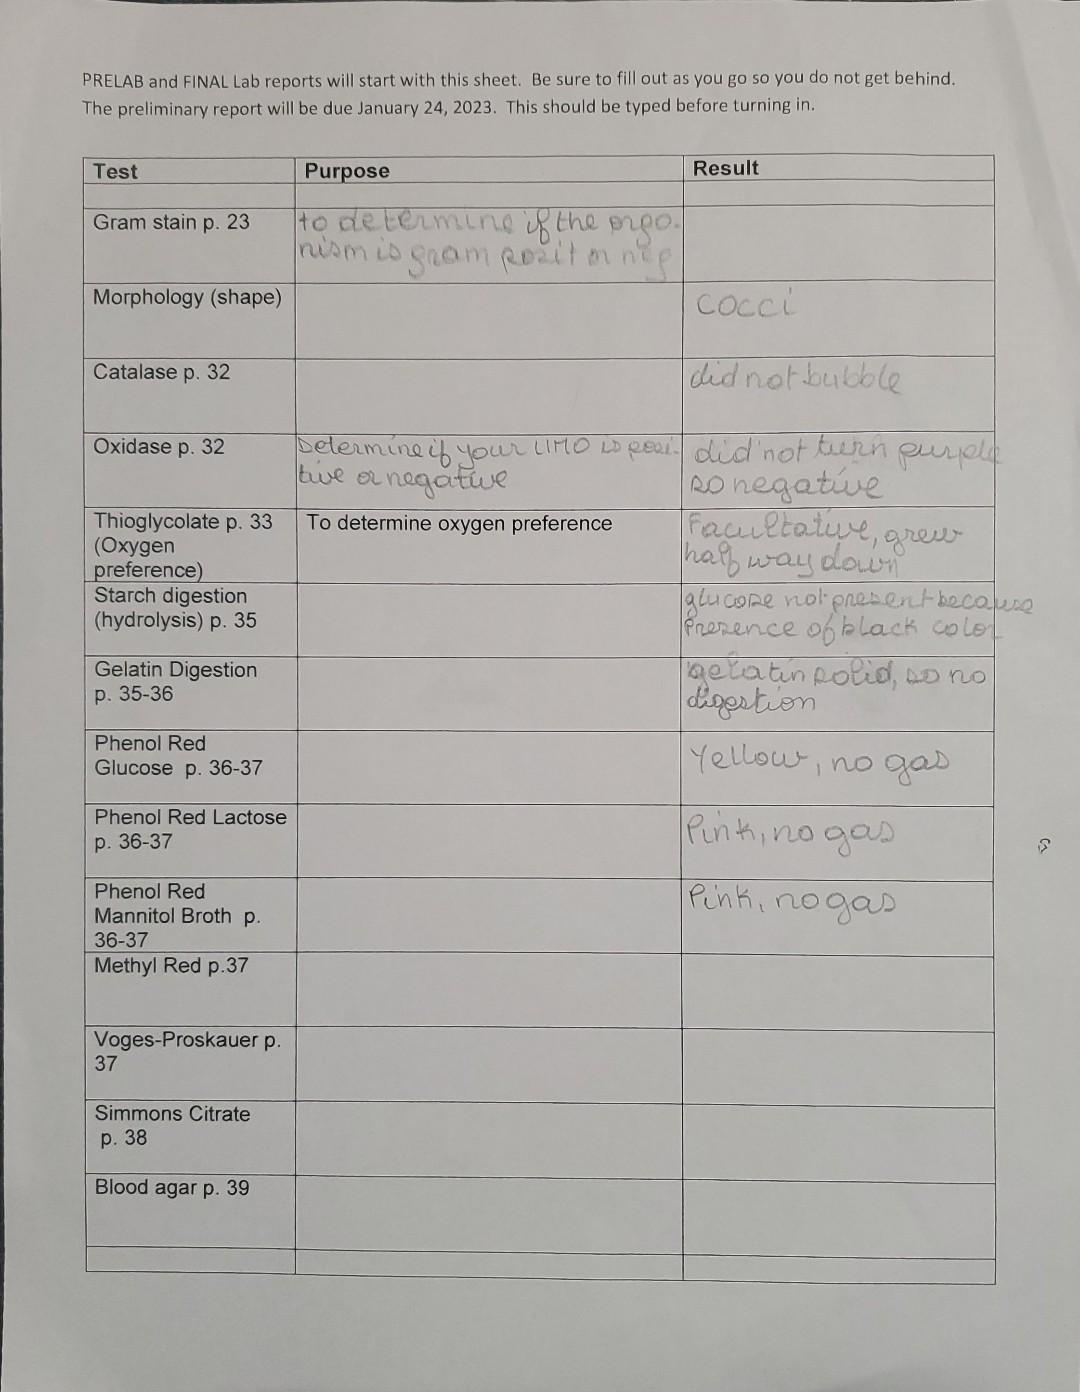 PRELAB and FINAL Lab reports will start with this sheet. Be sure to fill out as you go so you do not get behind.
The preliminary report will be due January 24, 2023. This should be typed before turning in.
Test Purpose Result
Gram stain p. 23 to determine if the orgo-
nism is gram posit or neg
Morphology (shape) cocci
Catalase p. 32 did not bubble
Oxidase p. 32 Determine if your UMO is posi- did not turn purple
tive or negative so negative
Thioglycolate p. 33 To determine oxygen preference Facultative, grew
(Oxygen half way down
preference)
Starch digestion glucose not present because
(hydrolysis) p. 35 Presence of black color
Gelatin Digestion gelatin solid, so no
p. 35-36 digestion
Phenol Red Yellow, no gas
Glucose p. 36-37
Phenol Red Lactose Pink, no gas
p. 36-37
Phenol Red Pink, no gas
Mannitol Broth p.
36-37
Methyl Red p.37
Voges-Proskauer p.
37
Simmons Citrate
p. 38
Blood agar p. 39